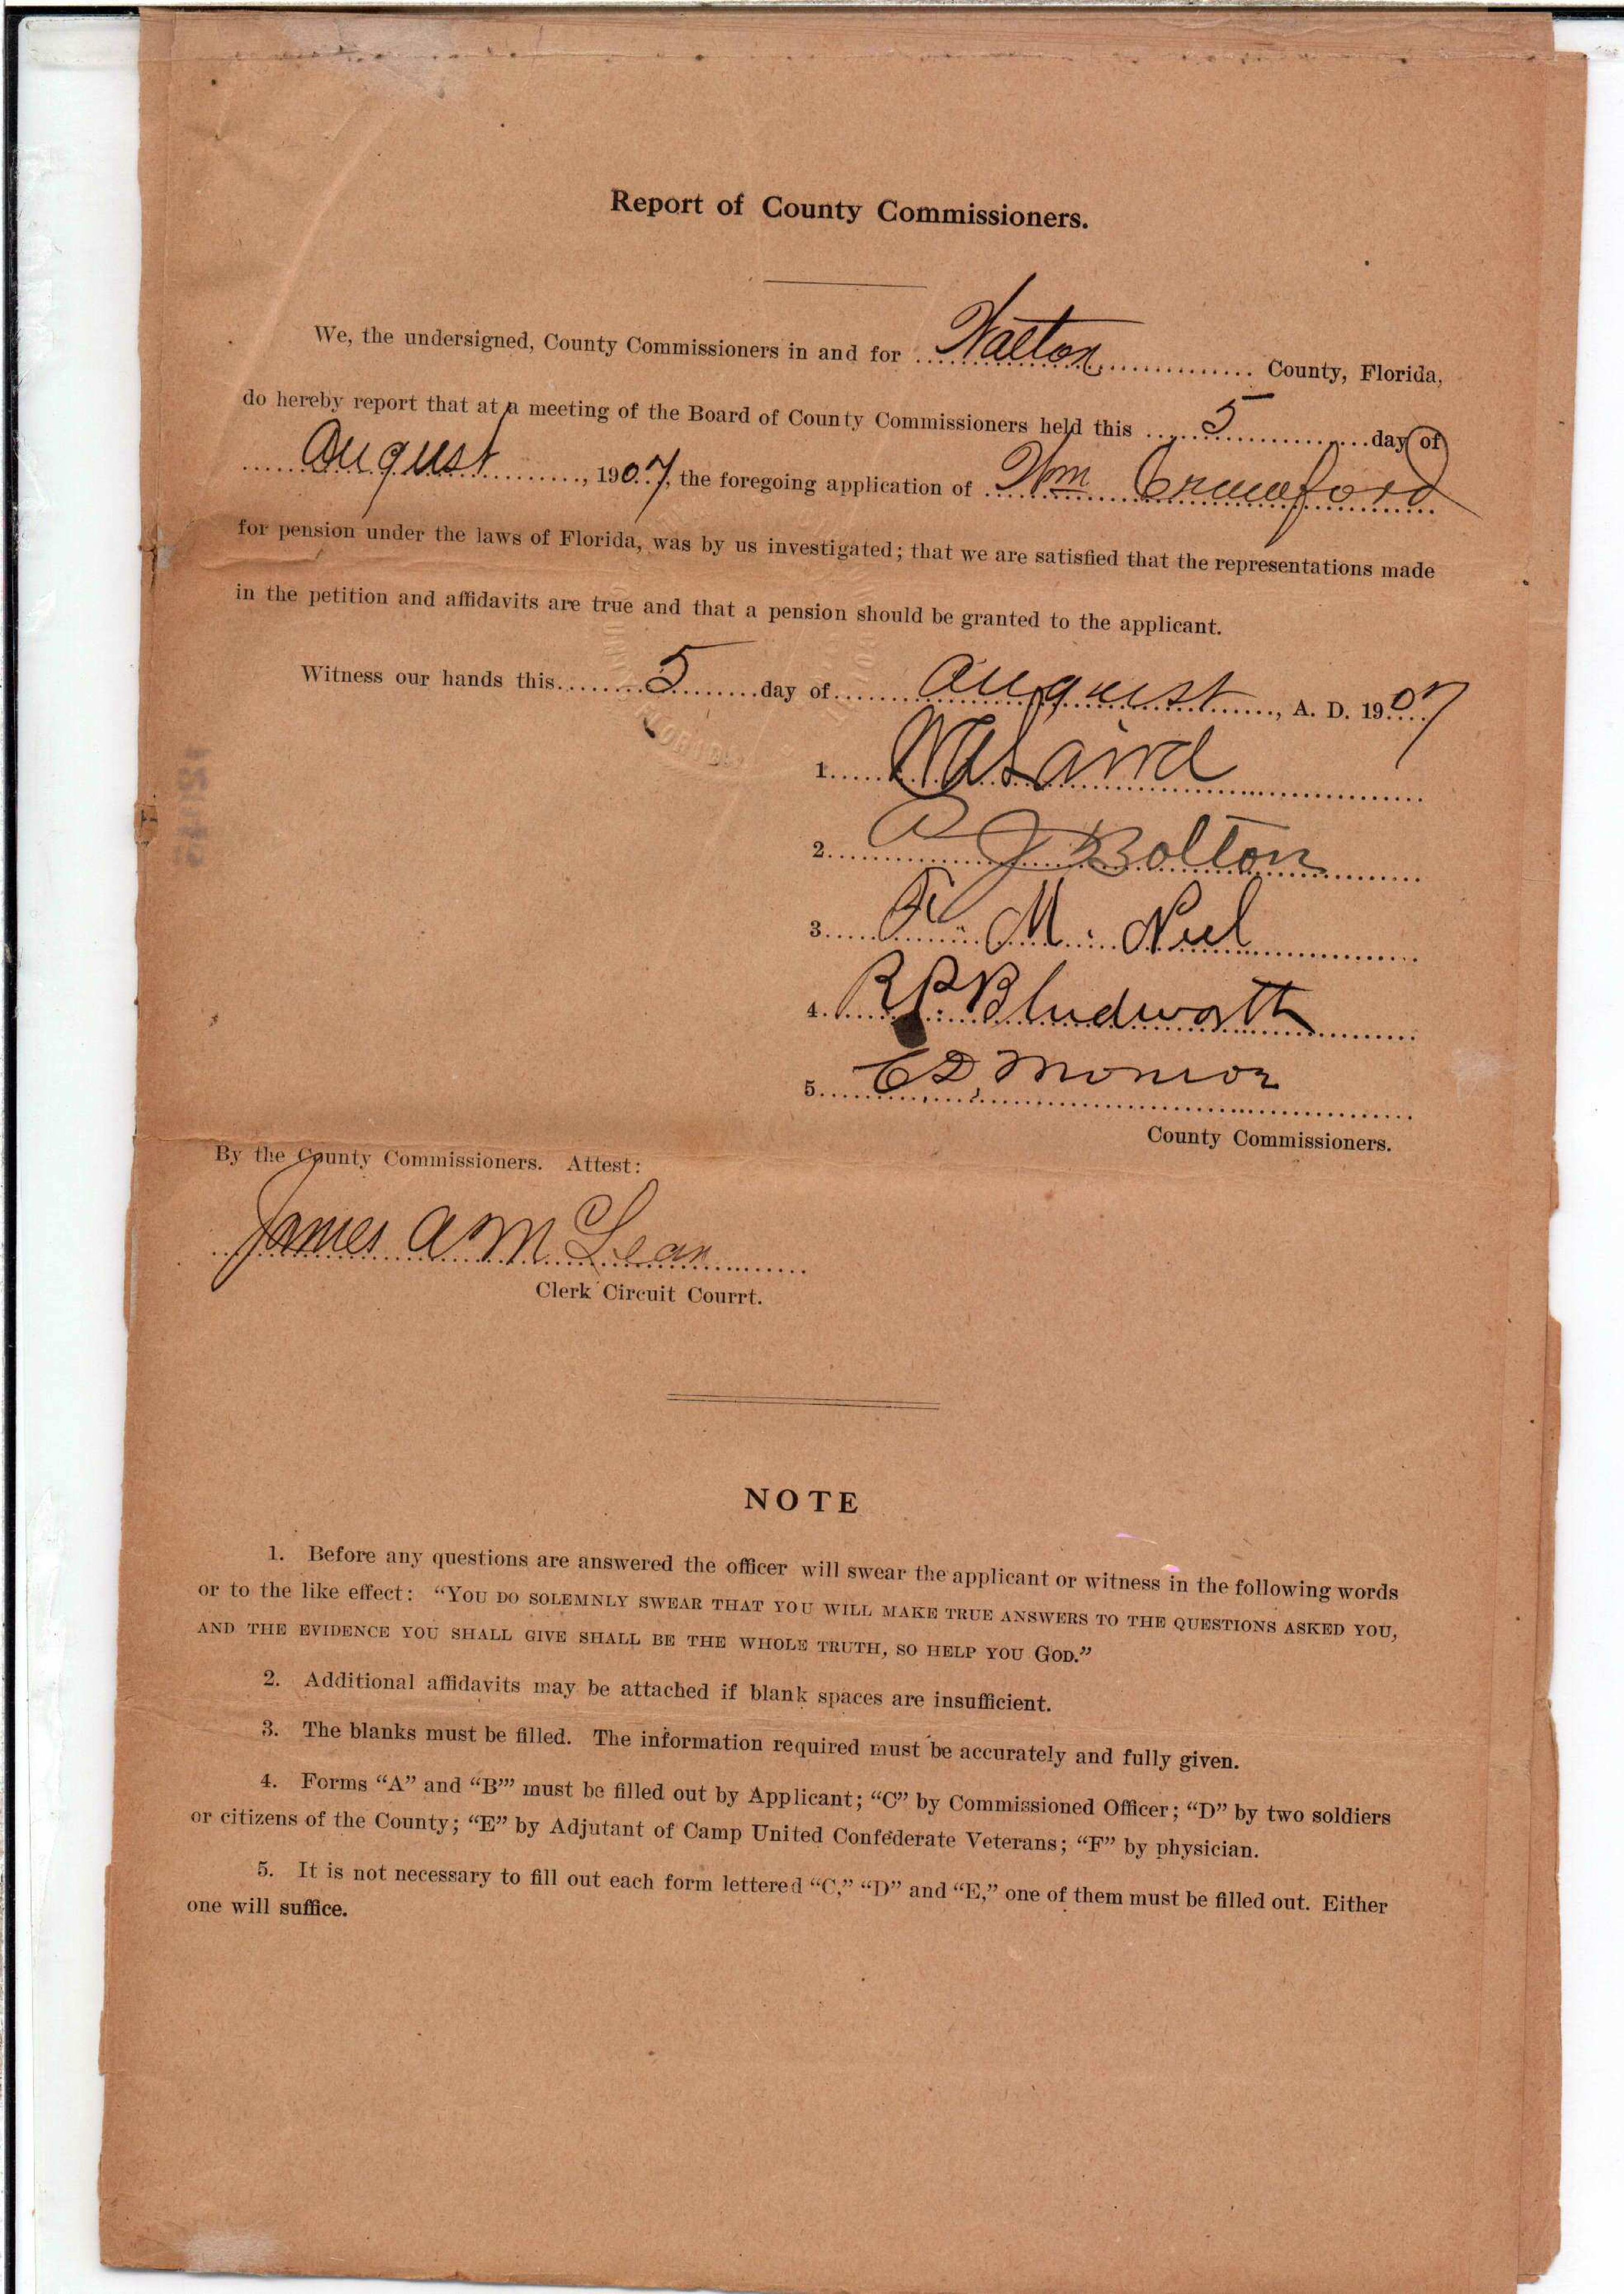 Report of County Commissioners.
We, the undersigned, County Commissioners in and for Walton County, Florida,
do hereby report that at a meeting of the Board of County Commissioners held this 5 day of
August, 1907, the foregoing application of Wm Crawford
for pension under the laws of Florida, was by us investigated; that we are satisfied that the representations made
in the petition and affidavits are true and that a pension should be granted to the applicant.
Witness our hands this 5 day of August, A. D. 1907
1. Laird
2. J Bolton
3. M. Neel
4. R P. Bludworth
5. C D. Monroe
County Commissioners.
By the County Commissioners. Attest:
James A McLean
Clerk Circuit Courrt.
NOTE
1. Before any questions are answered the officer will swear the applicant or witness in the following words
or to the like effect: “YOU DO SOLEMNLY SWEAR THAT YOU WILL MAKE TRUE ANSWERS TO THE QUESTIONS ASKED YOU,
AND THE EVIDENCE YOU SHALL GIVE SHALL BE THE WHOLE TRUTH, SO HELP YOU GOD.”
2. Additional affidavits may be attached if blank spaces are insufficient.
3. The blanks must be filled. The information required must be accurately and fully given.
4. Forms “A” and “B”’ must be filled out by Applicant; “C” by Commissioned Officer; “D” by two soldiers
or citizens of the County; “E” by Adjutant of Camp United Confederate Veterans; “F” by physician.
5. It is not necessary to fill out each form lettered “C,” “D” and “E,” one of them must be filled out. Either
one will suffice.